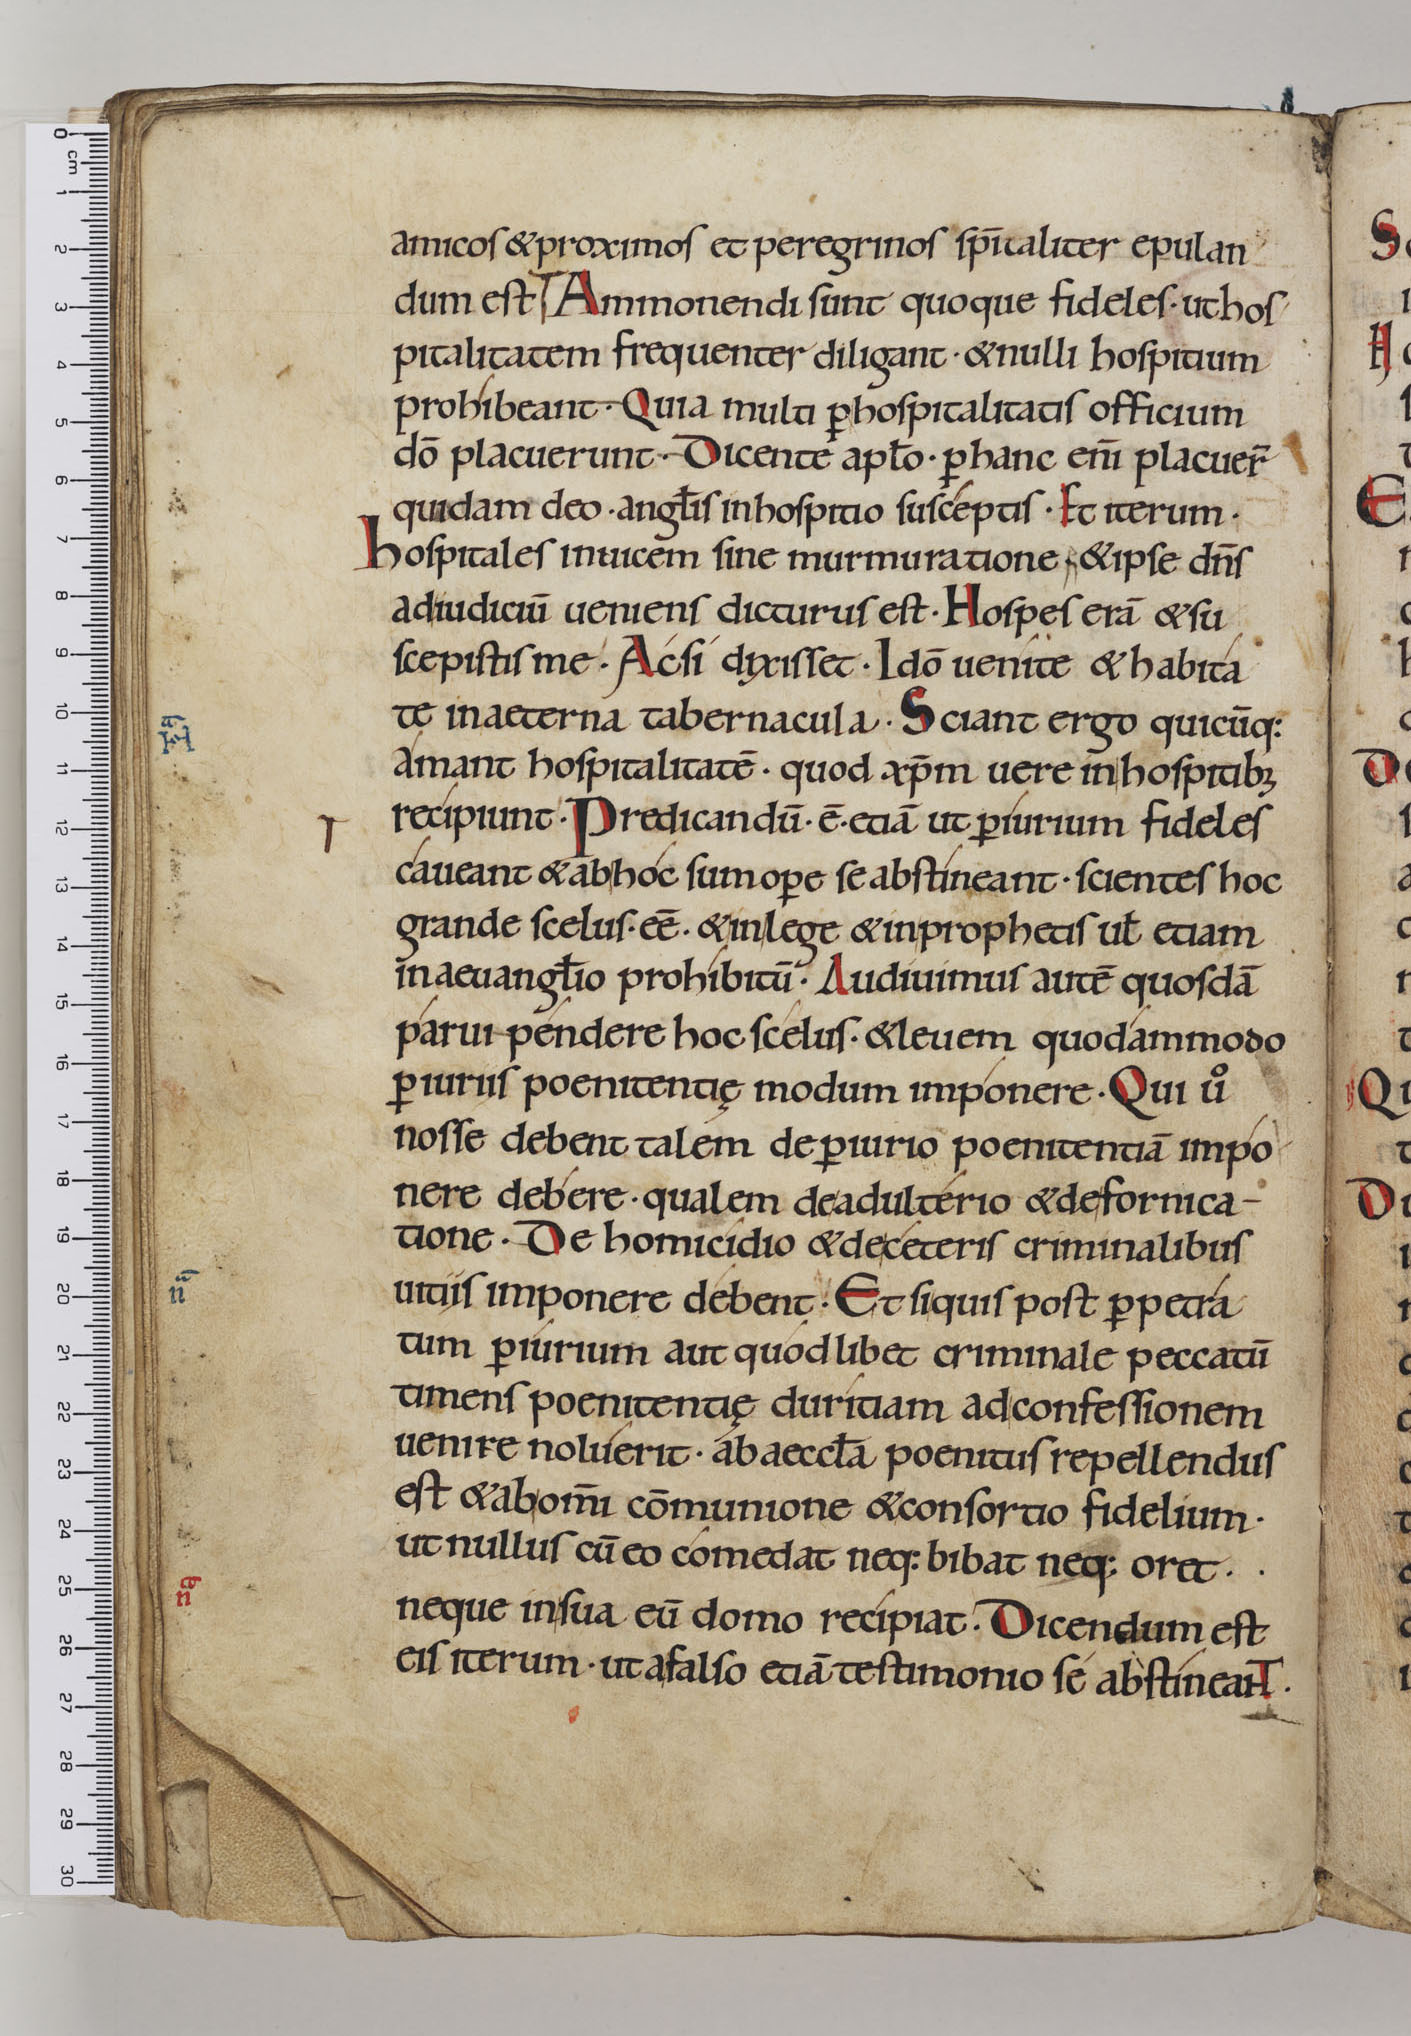 amicos & proximos et peregrinos sp̄italiter epulan
dum est Ammonendi sunt quoque fideles · ut hos
pitalitatem frequenter diligant · & nulli hospitium
prohibeant · Quia multi ꝑ hospitalitatis officium
dō placuerunt · Dicente apł̄o · ꝑ hanc enī placuer̄
quidam deo · angł̄is in hospitio susceptis · Et iterum ·
hospitales inuicem sine murmuratione · & ipse dn̄s
ad iudiciū ueniens dicturus est · Hospes erā & su
scepistis me · Ac si dixisset · Idō uenite & habita
te in aeterna tabernacula · Sciant ergo quicūq:
amant hospitalitatē · quod xp̄m uere in hospitibꝫ
recipiunt · Predicandū · ē · etiā ut ꝑiurium fideles
caueant & ab hoc sumoꝑe se abstineant · scientes hoc
grande scelus · eē · & in lege & in prophetis uł etiam
in aeuangł̄io prohibitū · Audiuimus autē quosdā
parui pendere hoc scelus · & leuem quodammodo
ꝑiuriis poenitentię modum imponere · Qui uº
nosse debent talem de ꝑiurio poenitentiā impo
nere debere · qualem de adulterio & de fornica-
tione · De homicidio & de ceteris criminalibus
uitiis imponere debent · Et siquis post ꝑpetra
tum ꝑiurium aut quod libet criminale peccatū
timens poenitentię duritiam ad confessionem
uenire noluerit · ab aeccł̄a poenitus repellendus
est & ab om̄i cōmunione & consortio fidelium ·
ut nullus cū eo comedat neq: bibat neq: oret · ·
neque in sua eū domo recipiat · Dicendum est
eis iterum · ut a falso etiā testimonio se abstineant ·